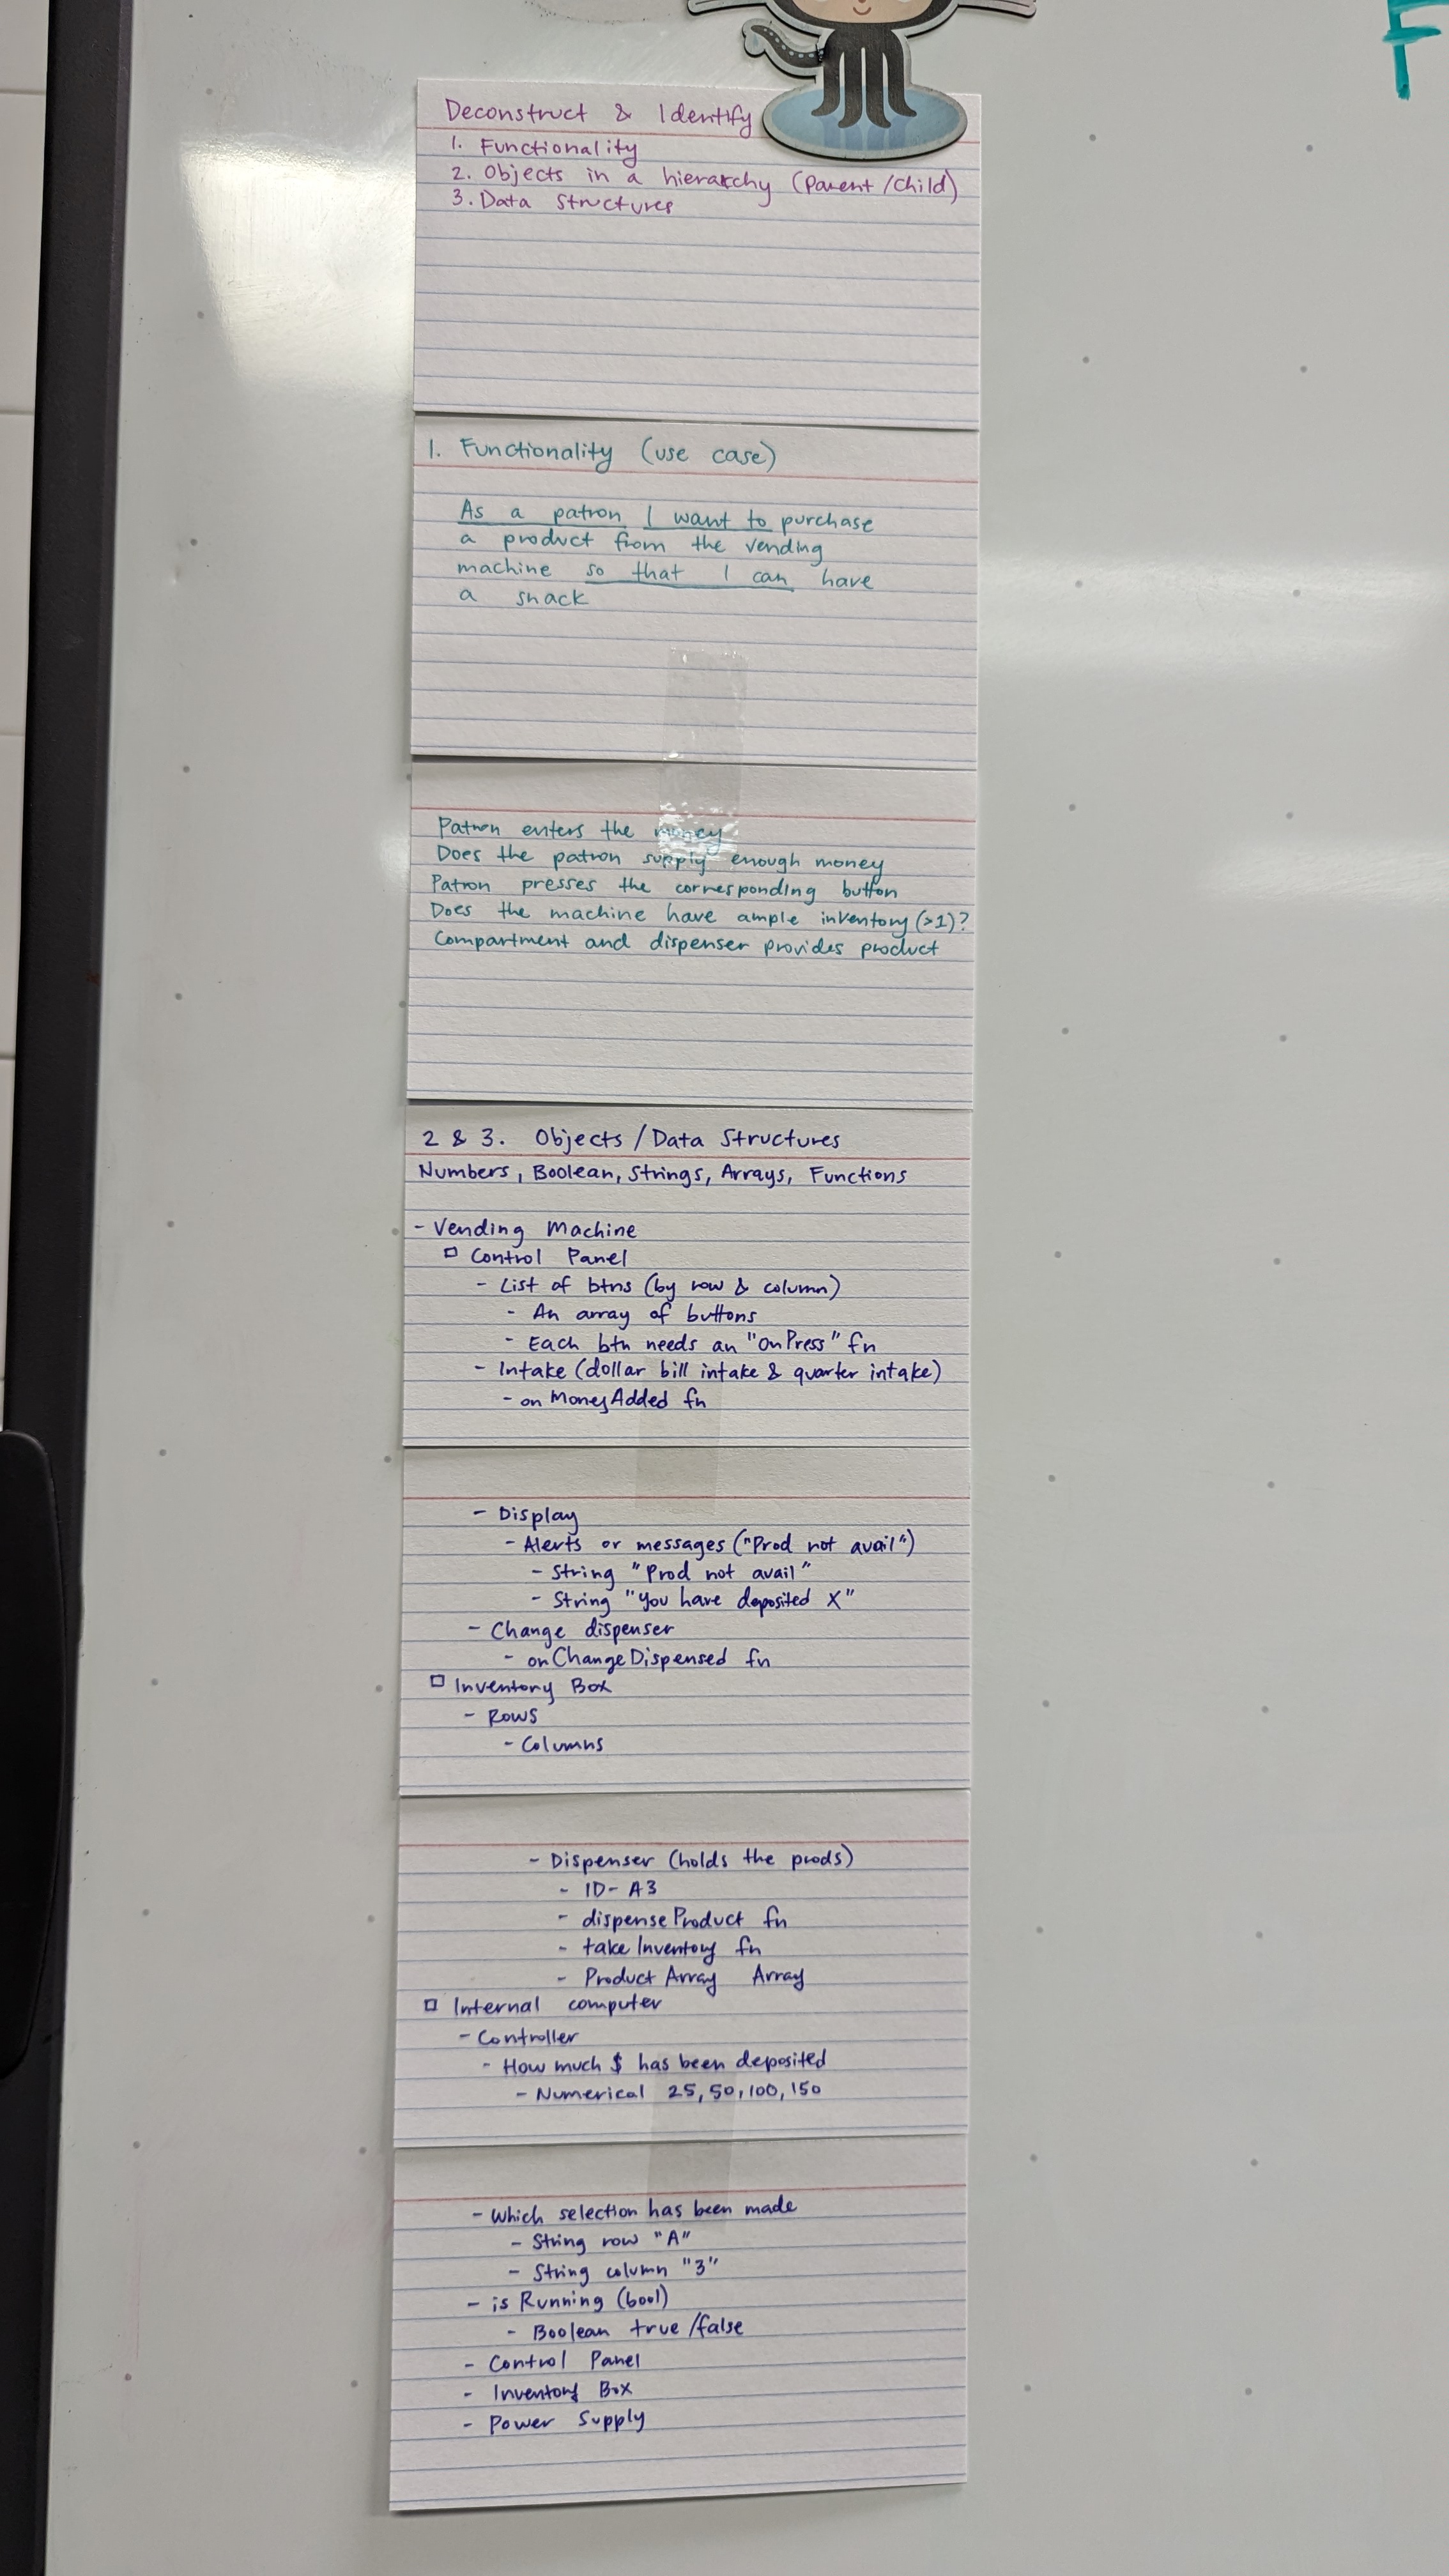 F
Deconstruct & Identify
1. Functionality
2. Objects in a hierarchy (Parent/Child)
3. Data Structures
1. Functionality (use case)
As a patron I want to purchase
a product from the vending
machine so that I can have
a snack
Patron enters the money
Does the patron supply enough money
Patron presses the corresponding button
Does the machine have ample inventory (>1)?
Compartment and dispenser provides product
2 & 3. Objects / Data Structures
Numbers, Boolean, Strings, Arrays, Functions
- Vending Machine
□ Control Panel
- List of btns (by row & column)
- An array of buttons
- Each btn needs an "onPress" fn
- Intake (dollar bill intake & quarter intake)
- onMoneyAdded fn
- Display
- Alerts or messages ("Prod not avail")
- String "Prod not avail"
- String "You have deposited X"
- Change dispenser
- onChangeDispensed fn
□ Inventory Box
- Rows
- Columns
- Dispenser (holds the prods)
- ID - A3
- dispenseProduct fn
- takeInventory fn
- Product Array Array
□ Internal computer
- Controller
- How much $ has been deposited
- Numerical 25, 50, 100, 150
- Which selection has been made
- String row "A"
- String column "3"
- is Running (bool)
- Boolean true/false
- Control Panel
- Inventory Box
- Power Supply